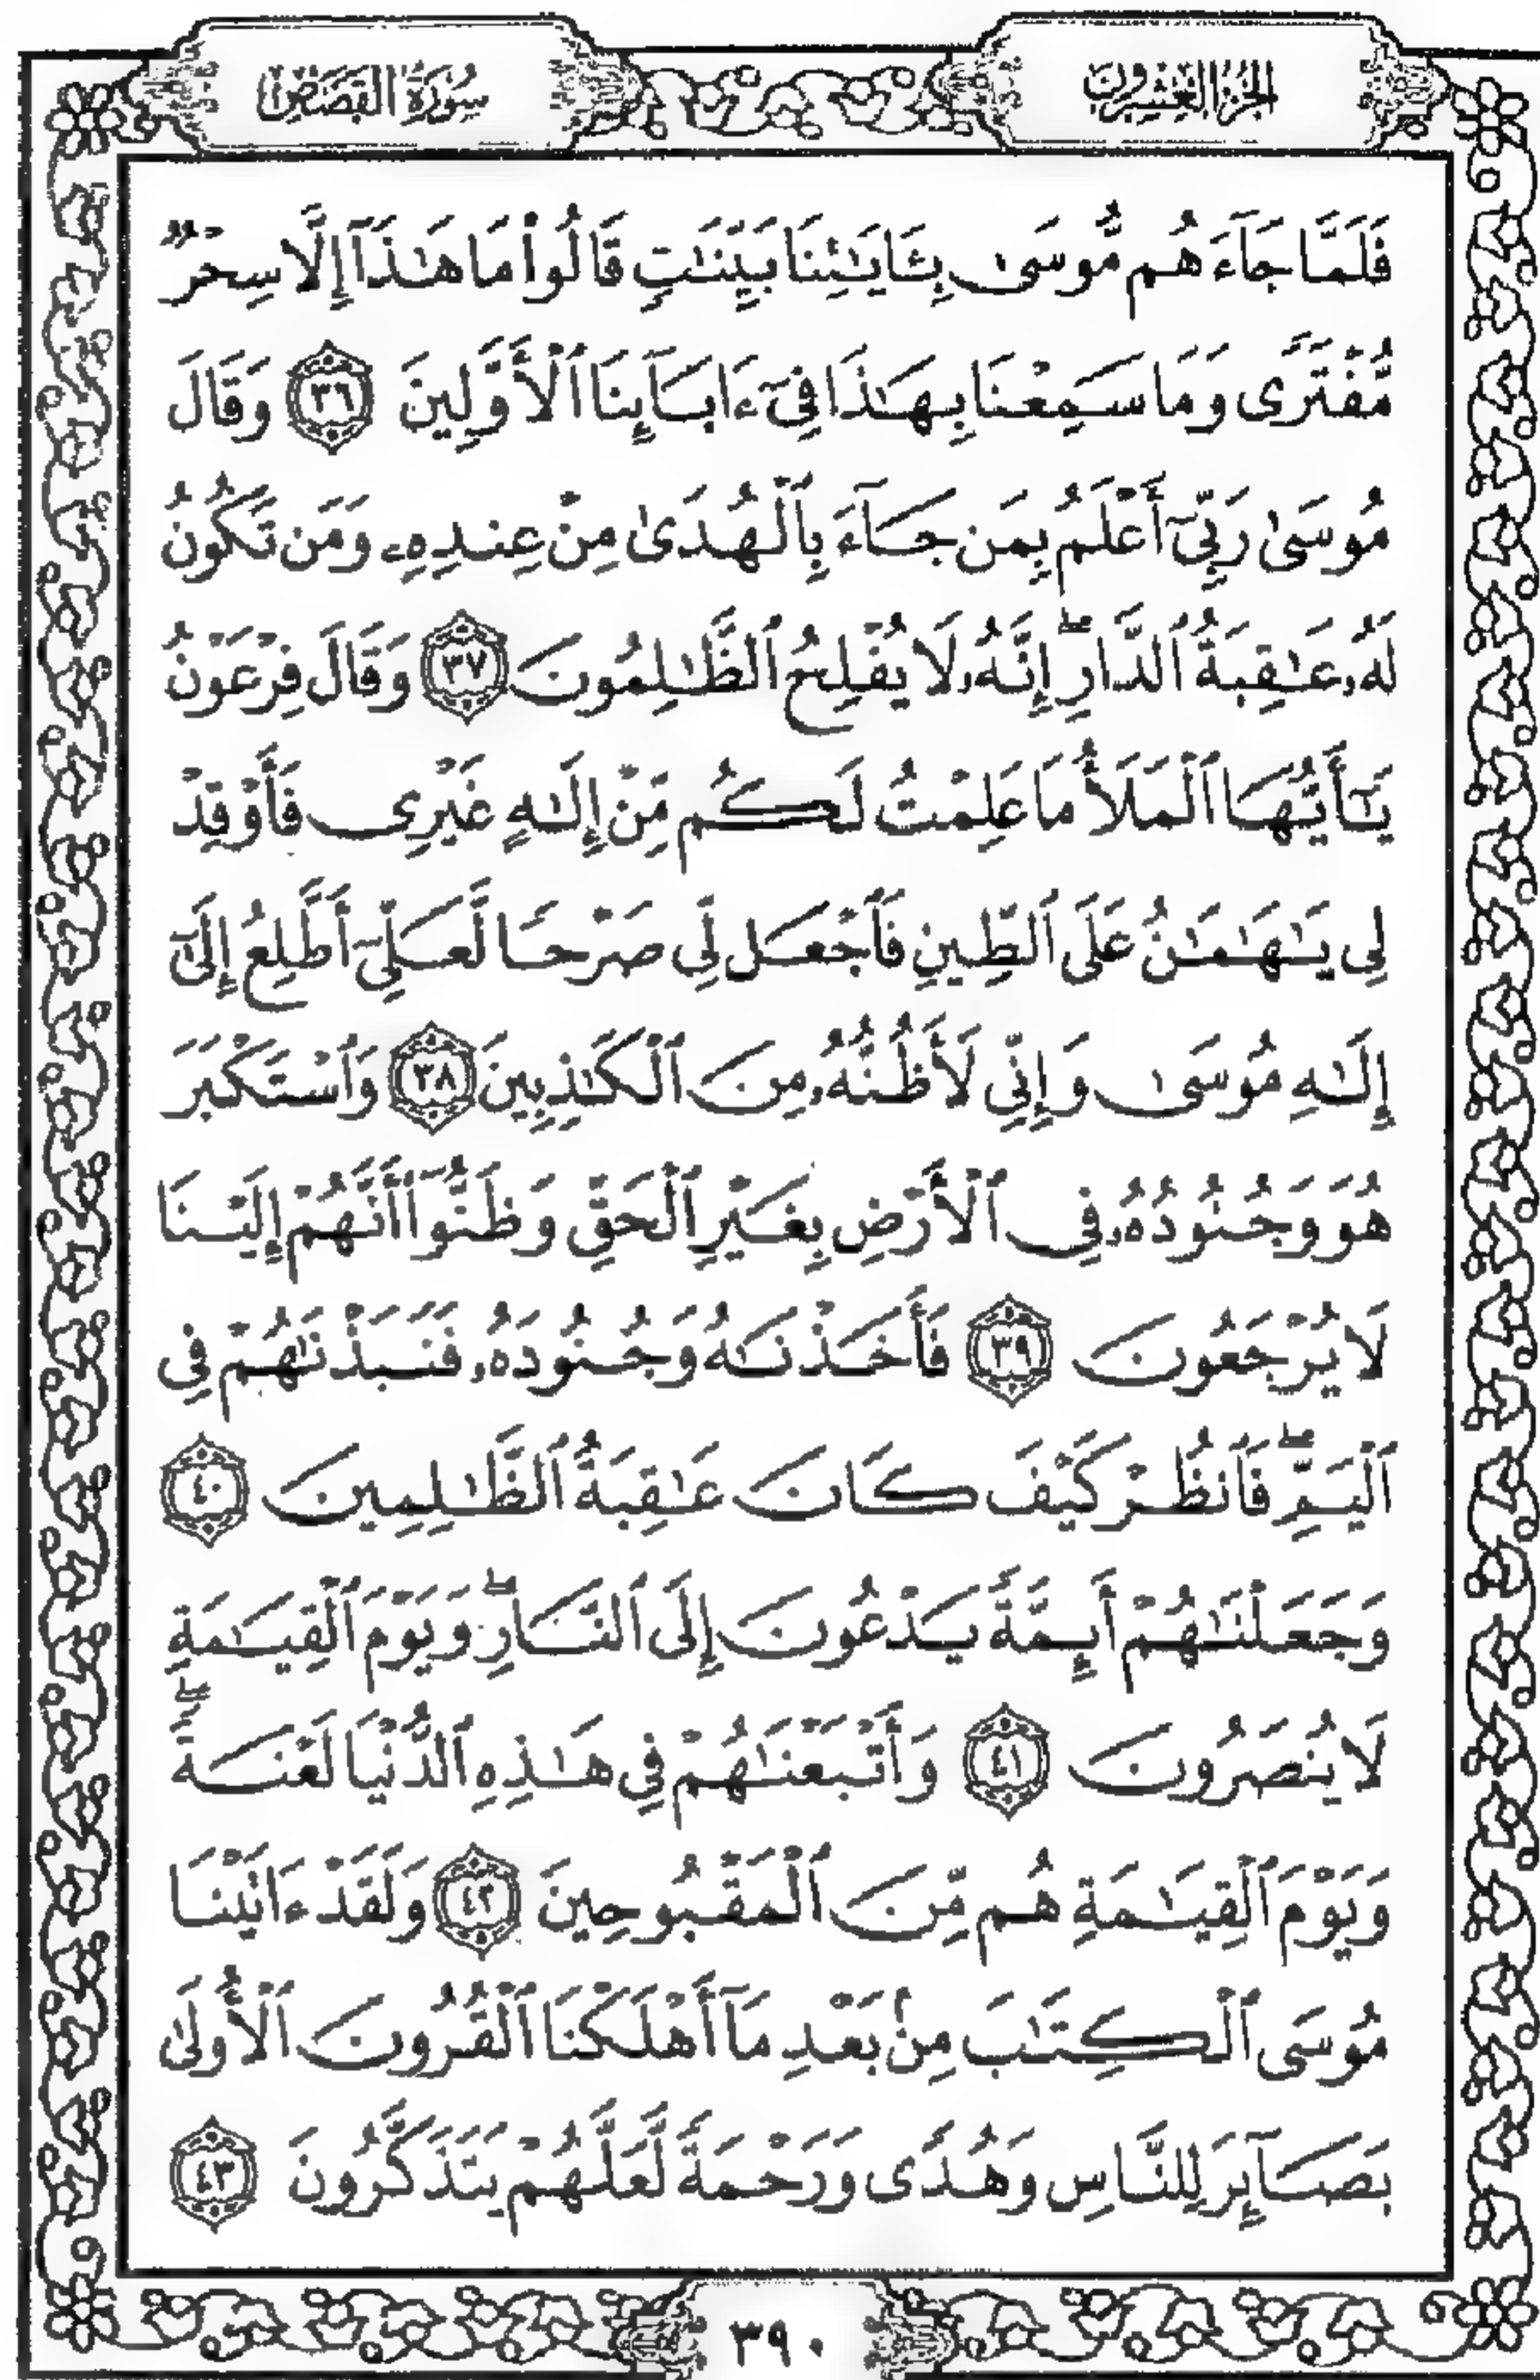 الجزء العشرون
سورة القصص
فَلَمَّا جَآءَهُم مُّوسَىٰ بِـَٔايَٰتِنَا بَيِّنَٰتٍ قَالُوا۟ مَا هَٰذَآ إِلَّا سِحْرٌ
مُّفْتَرًى وَمَا سَمِعْنَا بِهَٰذَا فِىٓ ءَابَآئِنَا ٱلْأَوَّلِينَ ٣٦ وَقَالَ
مُوسَىٰ رَبِّىٓ أَعْلَمُ بِمَن جَآءَ بِٱلْهُدَىٰ مِنْ عِندِهِۦ وَمَن تَكُونُ
لَهُۥ عَٰقِبَةُ ٱلدَّارِ ۖ إِنَّهُۥ لَا يُفْلِحُ ٱلظَّٰلِمُونَ ٣٧ وَقَالَ فِرْعَوْنُ
يَٰٓأَيُّهَا ٱلْمَلَأُ مَا عَلِمْتُ لَكُم مِّنْ إِلَٰهٍ غَيْرِى فَأَوْقِدْ
لِى يَٰهَٰمَٰنُ عَلَى ٱلطِّينِ فَٱجْعَل لِّى صَرْحًا لَّعَلِّىٓ أَطَّلِعُ إِلَىٰٓ
إِلَٰهِ مُوسَىٰ وَإِنِّى لَأَظُنُّهُۥ مِنَ ٱلْكَٰذِبِينَ ٣٨ وَٱسْتَكْبَرَ
هُوَ وَجُنُودُهُۥ فِى ٱلْأَرْضِ بِغَيْرِ ٱلْحَقِّ وَظَنُّوٓا۟ أَنَّهُمْ إِلَيْنَا
لَا يُرْجَعُونَ ٣٩ فَأَخَذْنَٰهُ وَجُنُودَهُۥ فَنَبَذْنَٰهُمْ فِى
ٱلْيَمِّ ۖ فَٱنظُرْ كَيْفَ كَانَ عَٰقِبَةُ ٱلظَّٰلِمِينَ ٤٠
وَجَعَلْنَٰهُمْ أَئِمَّةً يَدْعُونَ إِلَى ٱلنَّارِ ۖ وَيَوْمَ ٱلْقِيَٰمَةِ
لَا يُنصَرُونَ ٤١ وَأَتْبَعْنَٰهُمْ فِى هَٰذِهِ ٱلدُّنْيَا لَعْنَةً ۖ
وَيَوْمَ ٱلْقِيَٰمَةِ هُم مِّنَ ٱلْمَقْبُوحِينَ ٤٢ وَلَقَدْ ءَاتَيْنَا
مُوسَى ٱلْكِتَٰبَ مِنۢ بَعْدِ مَآ أَهْلَكْنَا ٱلْقُرُونَ ٱلْأُولَىٰ
بَصَآئِرَ لِلنَّاسِ وَهُدًى وَرَحْمَةً لَّعَلَّهُمْ يَتَذَكَّرُونَ ٤٣
٣٩٠